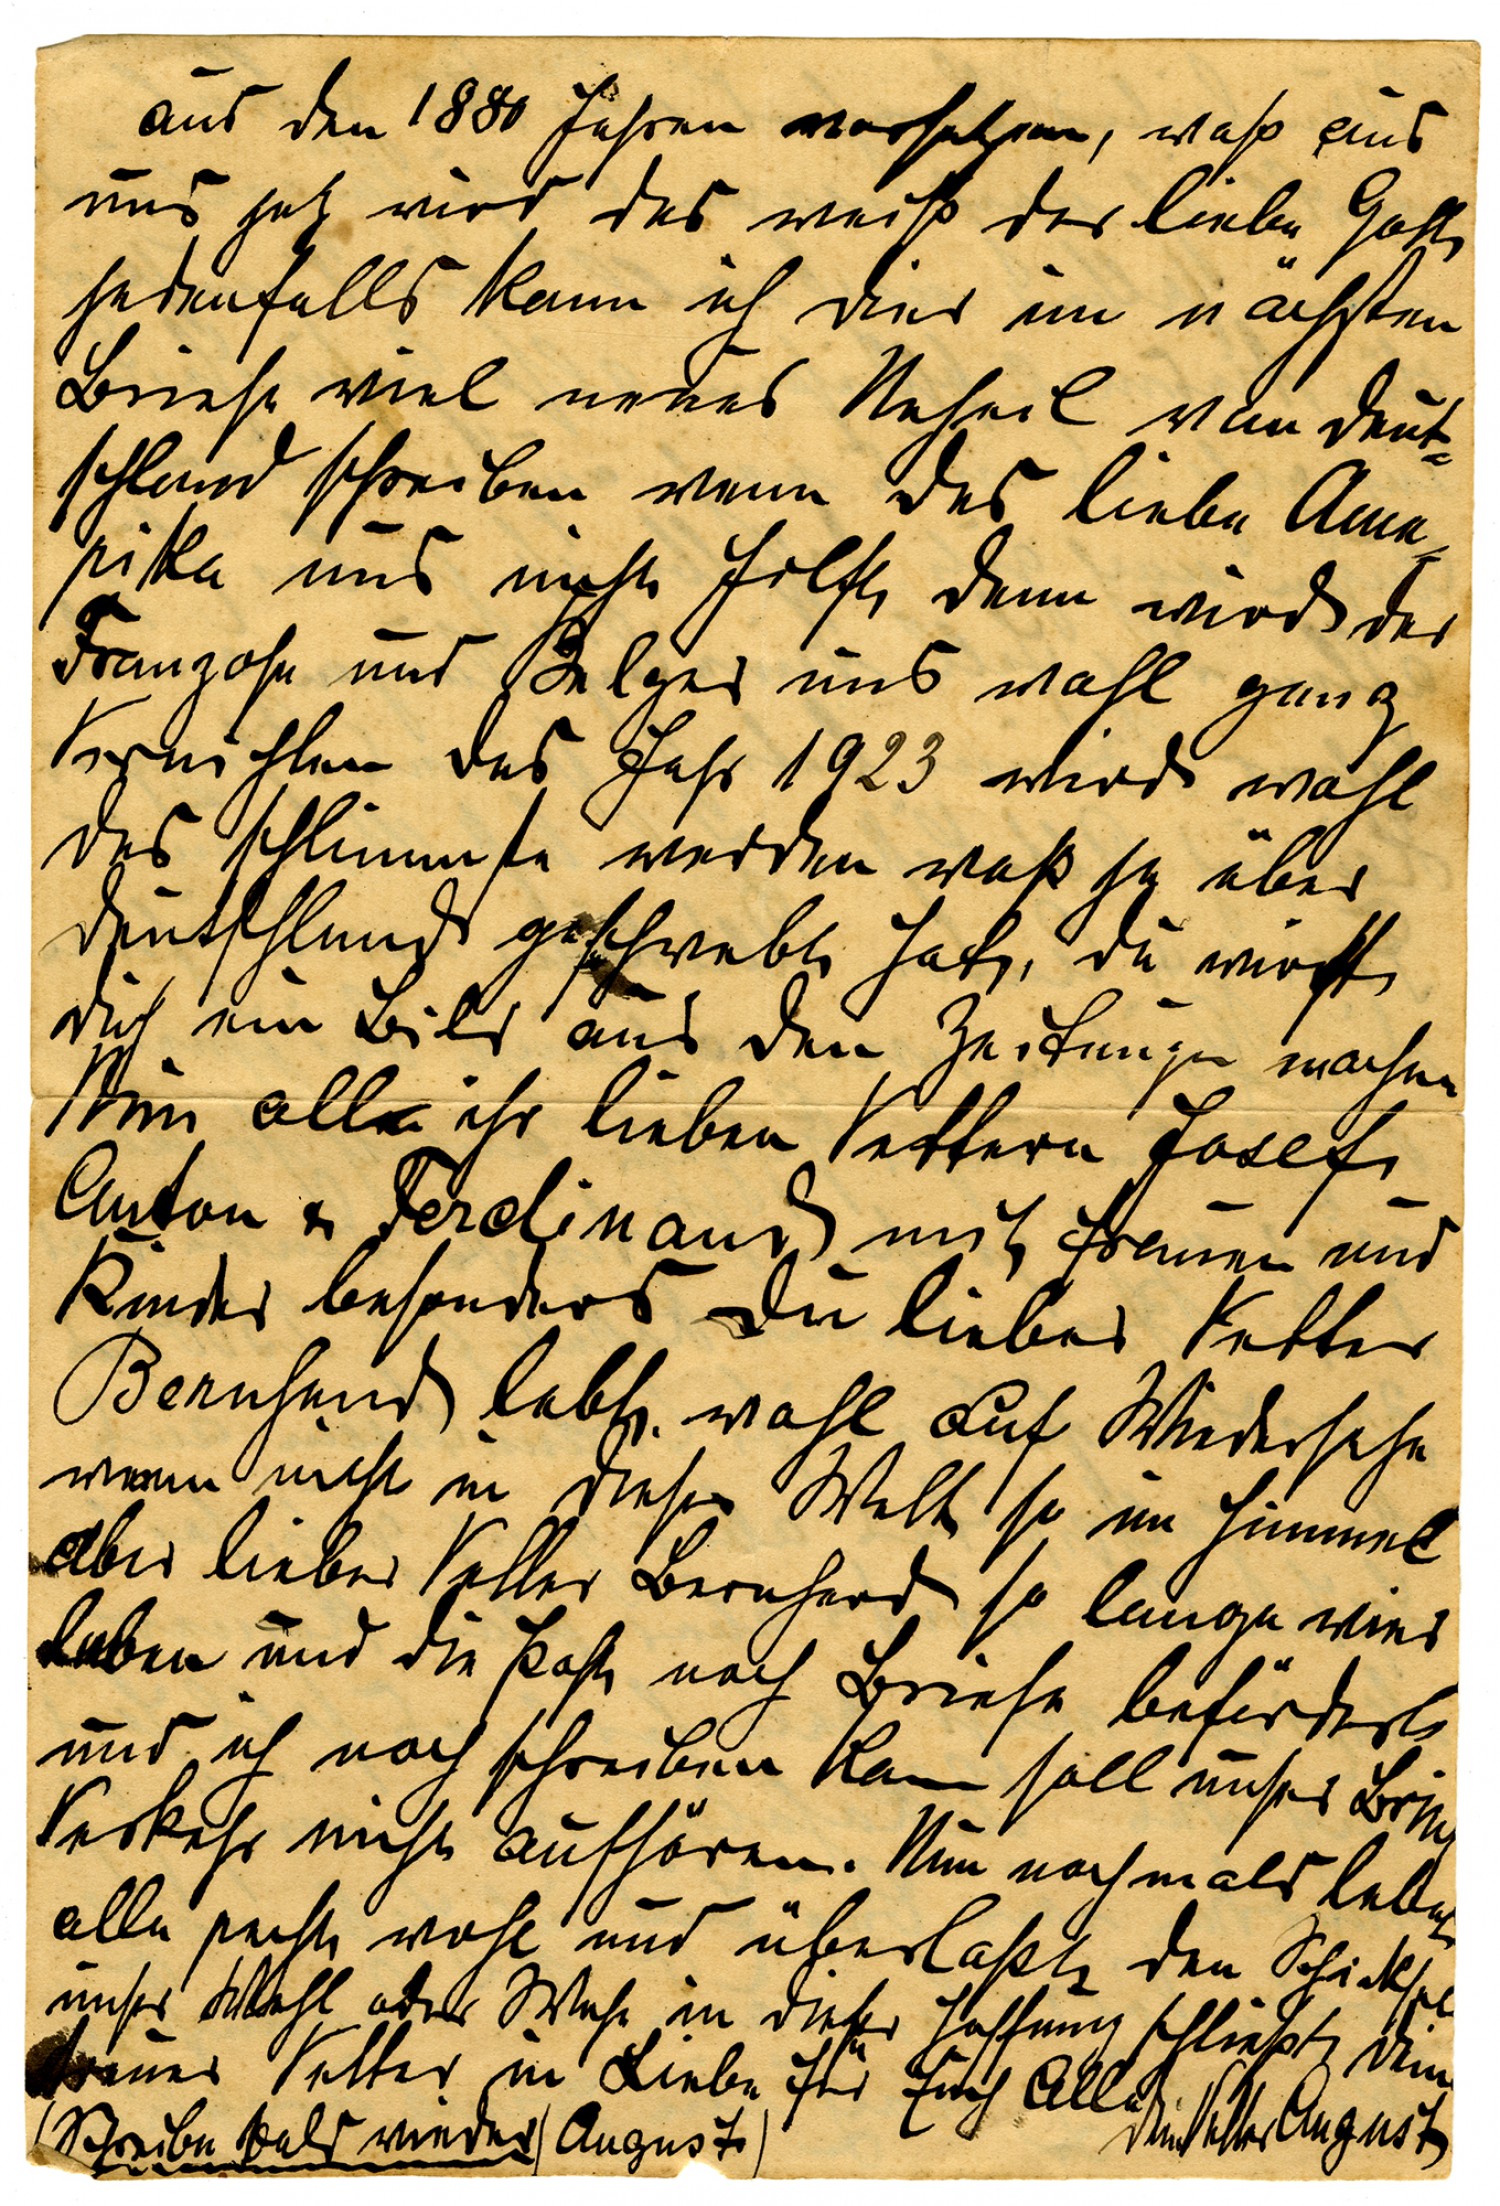 aus den 1880 Jahren, waß aus
uns jetz wird das weiß der liebe Gott,
jedenfalls kann ich dier im nächsten
Briefe viel neues von Deut=
schland schreiben wenn das liebe Ame=
rika uns nicht hilft, dann wird der
Franzose und Belger uns wohl ganz
Vernichten das Jahr 1923 wird wohl
das schlimmste werden waß je über
Deutschland geschwebt hat, du wirst
dich ein Bild aus den Zeitungen machen
Nun alle ihr lieben Vettern Josef,
Anton & Ferdinand mit Frauen und
Kinder besonders Du lieber Vetter
Bernhard lebt wohl auf Wiedersehn
wenn nicht in dieser Welt so im Himmel
aber lieber Vetter Bernhard so lange wier
leben und die Post noch Briefe befördert
und ich noch schreiben kann soll unser Brief
Verkehr nicht aufhören. Nun nochmals lebet
alle recht wohl und überlaßt den Schicksal
unser Wohl oder Wehe in dieser Hoffnung schließt dein
treuer Vetter in Liebe für Euch Alle
dein Vetter August
(Schreibe bald wieder) August)